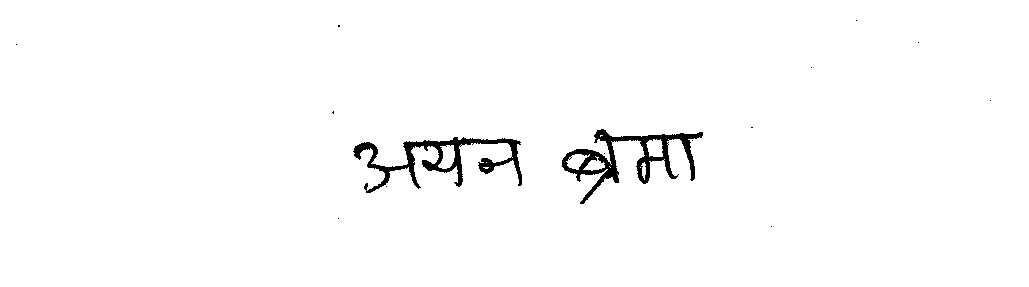 अयन ब्रेमा